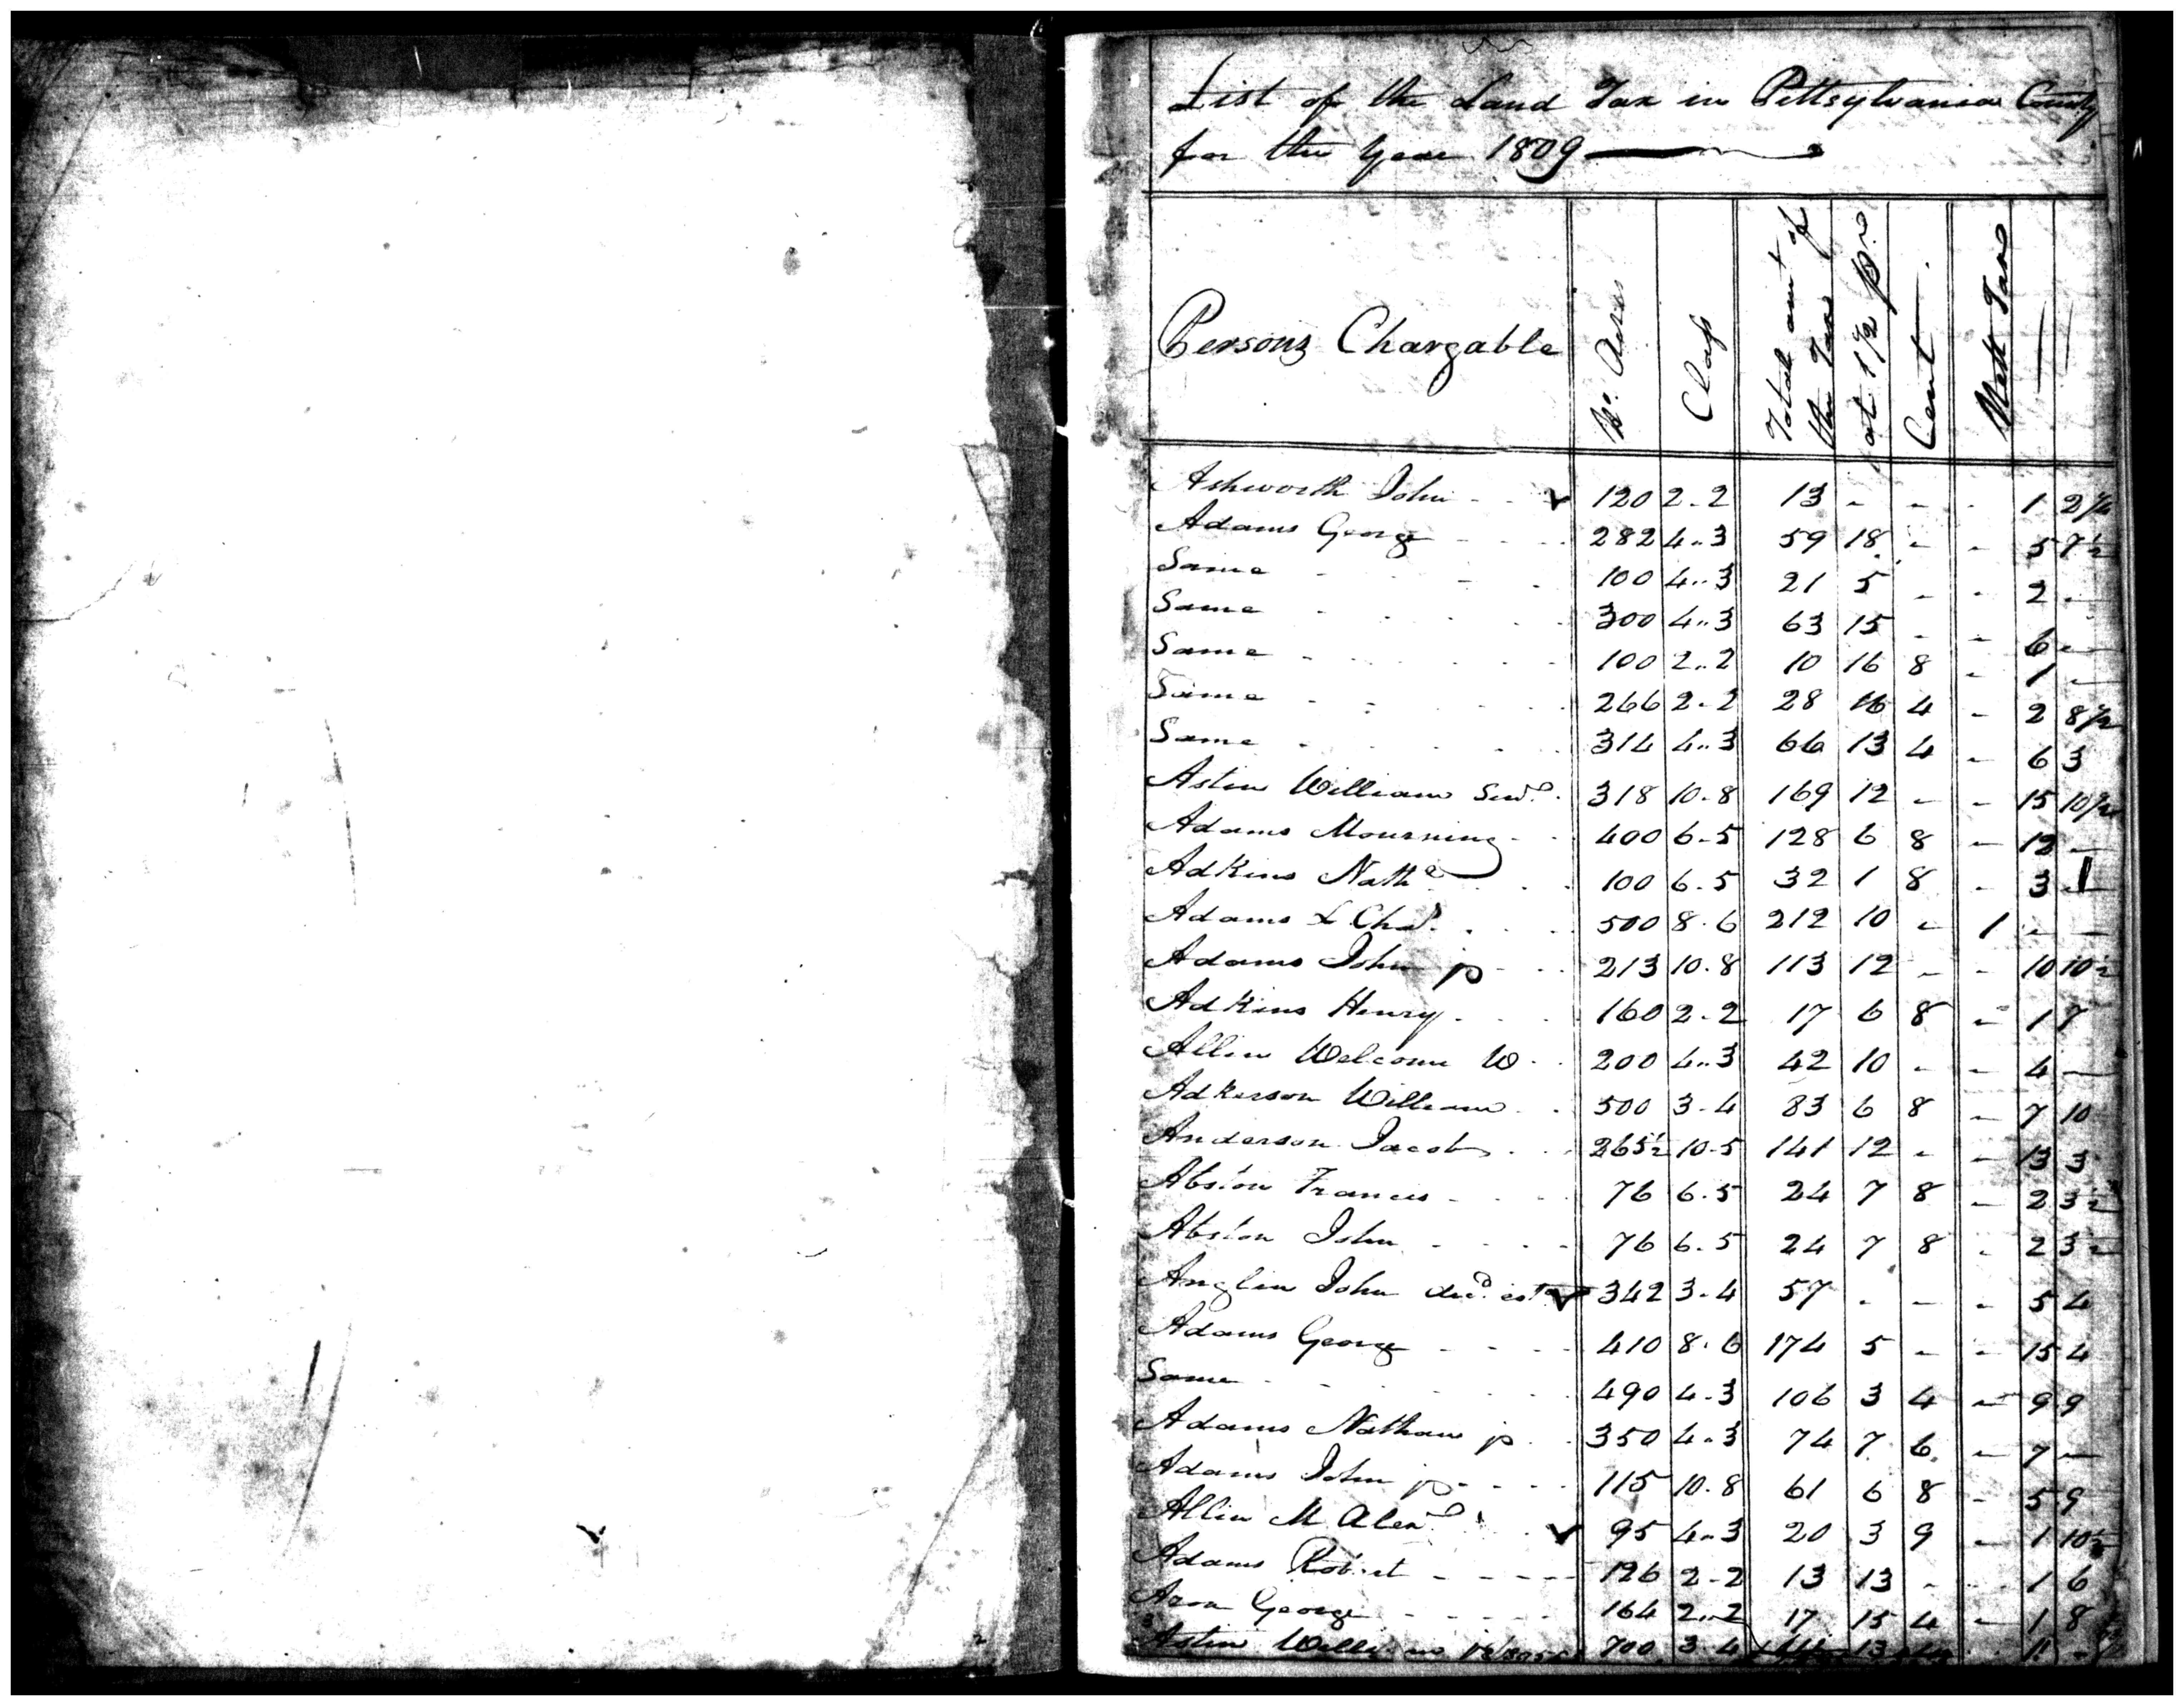 List of the Land Tax in Pittsylvania County
for the Year 1809
Persons Chargable No. Acres Class Total amt of the Tax at 1 1/2 pr. Cent. Nett Tax
Ashworth John - - 120 2-2 13 - - - 1 2 1/4
Adams George - - - 282 4..3 59 18 - - 5 7 1/2
Same - - - 100 4..3 21 5 - - 2 -
Same - - - 300 4..3 63 15 - - 6 -
Same - - - 100 2..2 10 16 8 - 1 -
Same - - - 266 2-2 28 16 4 - 2 8 1/2
Same - - - 314 4..3 66 13 4 - 6 3
Astin William Senr. 318 10-8 169 12 - - 15 10 1/2
Adams Mourning - 400 6-5 128 6 8 - 12 -
Adkins Nath - - 100 6-5 32 1 8 - 3
Adams 500 8-6 212 10 - 1 - -
Adams John p - - 213 10-8 113 12 - - 10 10 1/2
Adkins Henry - - 160 2-2 17 6 8 - 1 7
Allin Welcome W - 200 4..3 42 10 - - 4 -
Adkerson William - 500 3-4 83 6 8 - 7 10
Anderson Jacob - 265 1/2 10-5 141 12 - - 13 3
Abston Francis - - 76 6-5 24 7 8 - 2 3 1/2
Abston John - - - 76 6-5 24 7 8 - 2 3 1/2
Anglin John decd. est 342 3-4 57 - - - 5 4
Adams George - - - 410 8-6 174 5 - - 15 4
Same - - - 490 4-3 106 3 4 - 9 9
Adams Nathan p - 350 4-3 74 7 6 - 7 -
Adams John p - - - 115 10-8 61 6 8 - 5 9
Allin M Alexr - 95 4..3 20 3 9 - 1 10 1/2
Adams Robert - - - 126 2-2 13 13 - - 1 6
Aron George - - - 164 2..2 17 15 4 - 1 8
Astin William 700 3-4 13 11 -